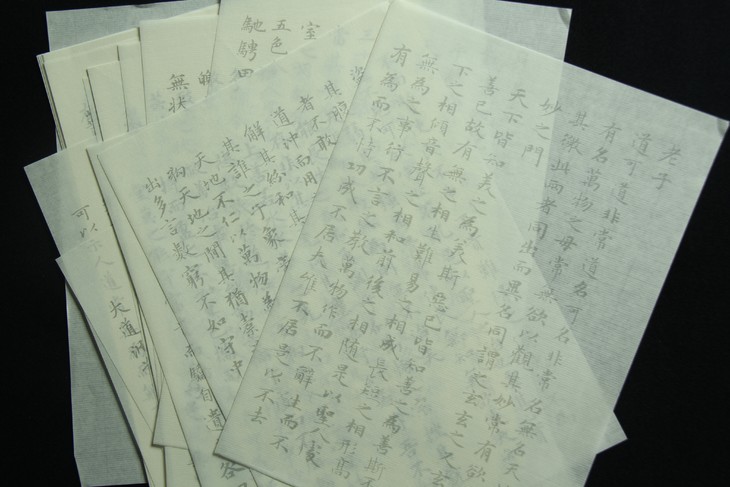 老子
道可道非常道名可名非常名無名天
有名萬物之母常無欲以觀其妙常有欲
其徼此兩者同出而異名同謂之玄玄之又玄
妙之門
天下皆知美之為美斯惡已皆知善之為善斯不
善已故有無之相生難易之相成長短之相形高
下之相傾音聲之相和前後之相隨是以聖人處
無為之事行不言之教萬物作而不辭生而不
有為而不恃功成不居夫唯不居是以不去
不敢
者
道沖而用
解其紛和其
其誰之子象
天地不仁以萬物為
狗天地之間其猶橐
出多言數窮不如守中
室之
五色
馳騁田
無狀
可以
大道